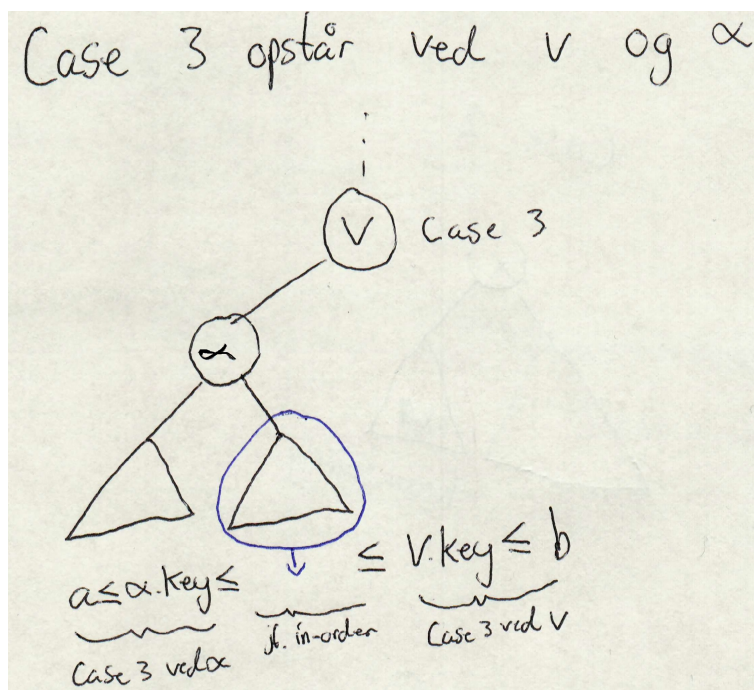 Case 3 opstår ved v og α
V Case 3
α
a ≤ α.key ≤ ≤ V.key ≤ b
Case 3 ved α jf. in-order Case 3 ved V